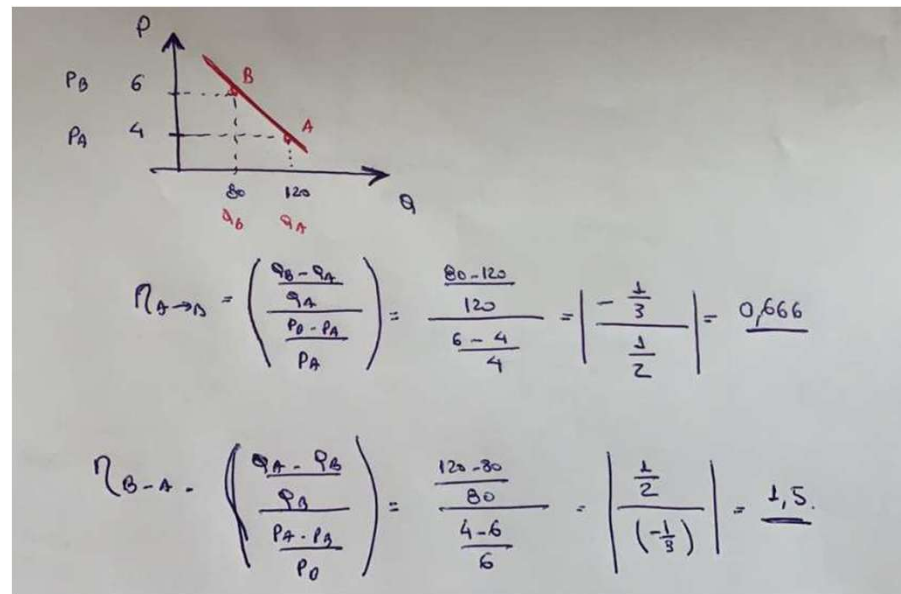 P
P_B 6 B
P_A 4 A
80 120 Q
Q_B Q_A
η_{A→B} = ( ((Q_B - Q_A)/Q_A) / ((P_B - P_A)/P_A) ) = ((80-120)/120) / ((6-4)/4) = | (-1/3) / (1/2) | = 0,666
η_{B-A} = ( ((Q_A - Q_B)/Q_B) / ((P_A - P_B)/P_B) ) = ((120-80)/80) / ((4-6)/6) = | (1/2) / (-1/3) | = 1,5.